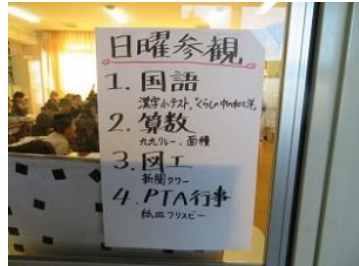 日曜参観
1. 国語
漢字小テスト、"くらしの中の和と洋"
2. 算数
九九リレー、面積
3. 図工
新聞タワー
4. PTA行事
紙皿フリスビー